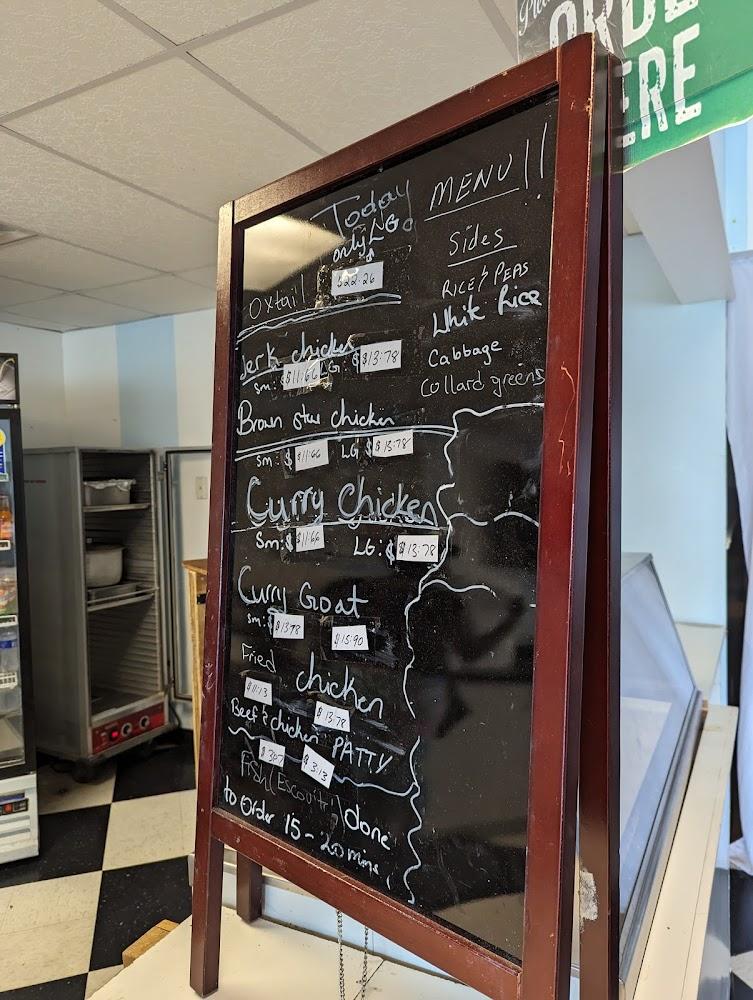 ORDER
HERE
Today
MENU!!
only LG
Oxtail $22.26
Jerk chicken
Sm: $ $11.66 LG: $ $13.78
Brown stew chicken
Sm: $ $11.66 LG $ $13.78
Curry Chicken
Sm: $ $11.66 LG: $ $13.78
Curry Goat
Sm: $13.78 $15.90
Fried chicken
$11.13 $13.78
Beef & chicken PATTY
$3.13
Fish (Escovitch) done
to order 15-20 mins
Sides
RICE & PEAS
White Rice
Cabbage
Collard greens